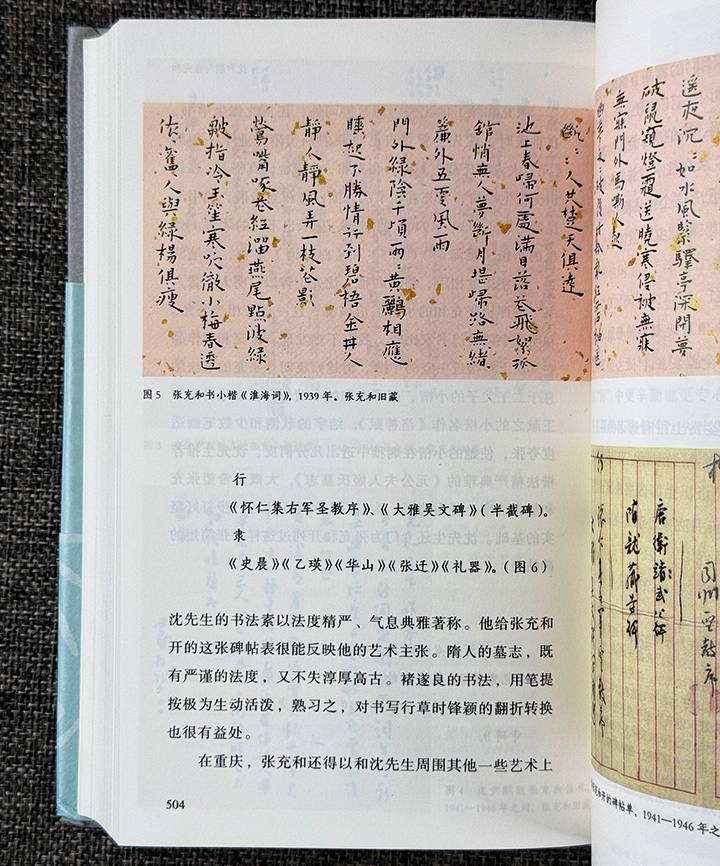 斷：人共楚天俱遠
池上春歸何處滿目落花飛絮孤
館悄無人夢斷月堤歸路無緒
簾外五更風雨
門外綠陰千頃兩：黃鸝相應
睡起不勝情行到碧梧金井人
靜人靜風弄一枝花影
鶯嘴啄花紅溜燕尾點波綠
皺指冷玉笙寒吹徹小梅春透
依舊人與綠楊俱瘦
图 5 张充和书小楷《淮海词》，1939 年。张充和旧藏
行
《怀仁集右军圣教序》、《大雅吴文碑》（半截碑）。
隶
《史晨》《乙瑛》《华山》《张迁》《礼器》。（图 6）
沈先生的书法素以法度精严、气息典雅著称。他给张充和
开的这张碑帖表很能反映他的艺术主张。隋人的墓志，既
有严谨的法度，又不失淳厚高古。褚遂良的书法，用笔提
按极为生动活泼，熟习之，对书写行草时锋颖的翻折转换
也很有益处。
在重庆，张充和还得以和沈先生周围其他一些艺术上
504
遙夜沉：如水風緊驛亭深閉夢
破鼠窺燈霜送曉寒侵被無寐
無寐門外馬嘶人起
隋龍藏寺碑
开的碑帖单，1941—1946 年之